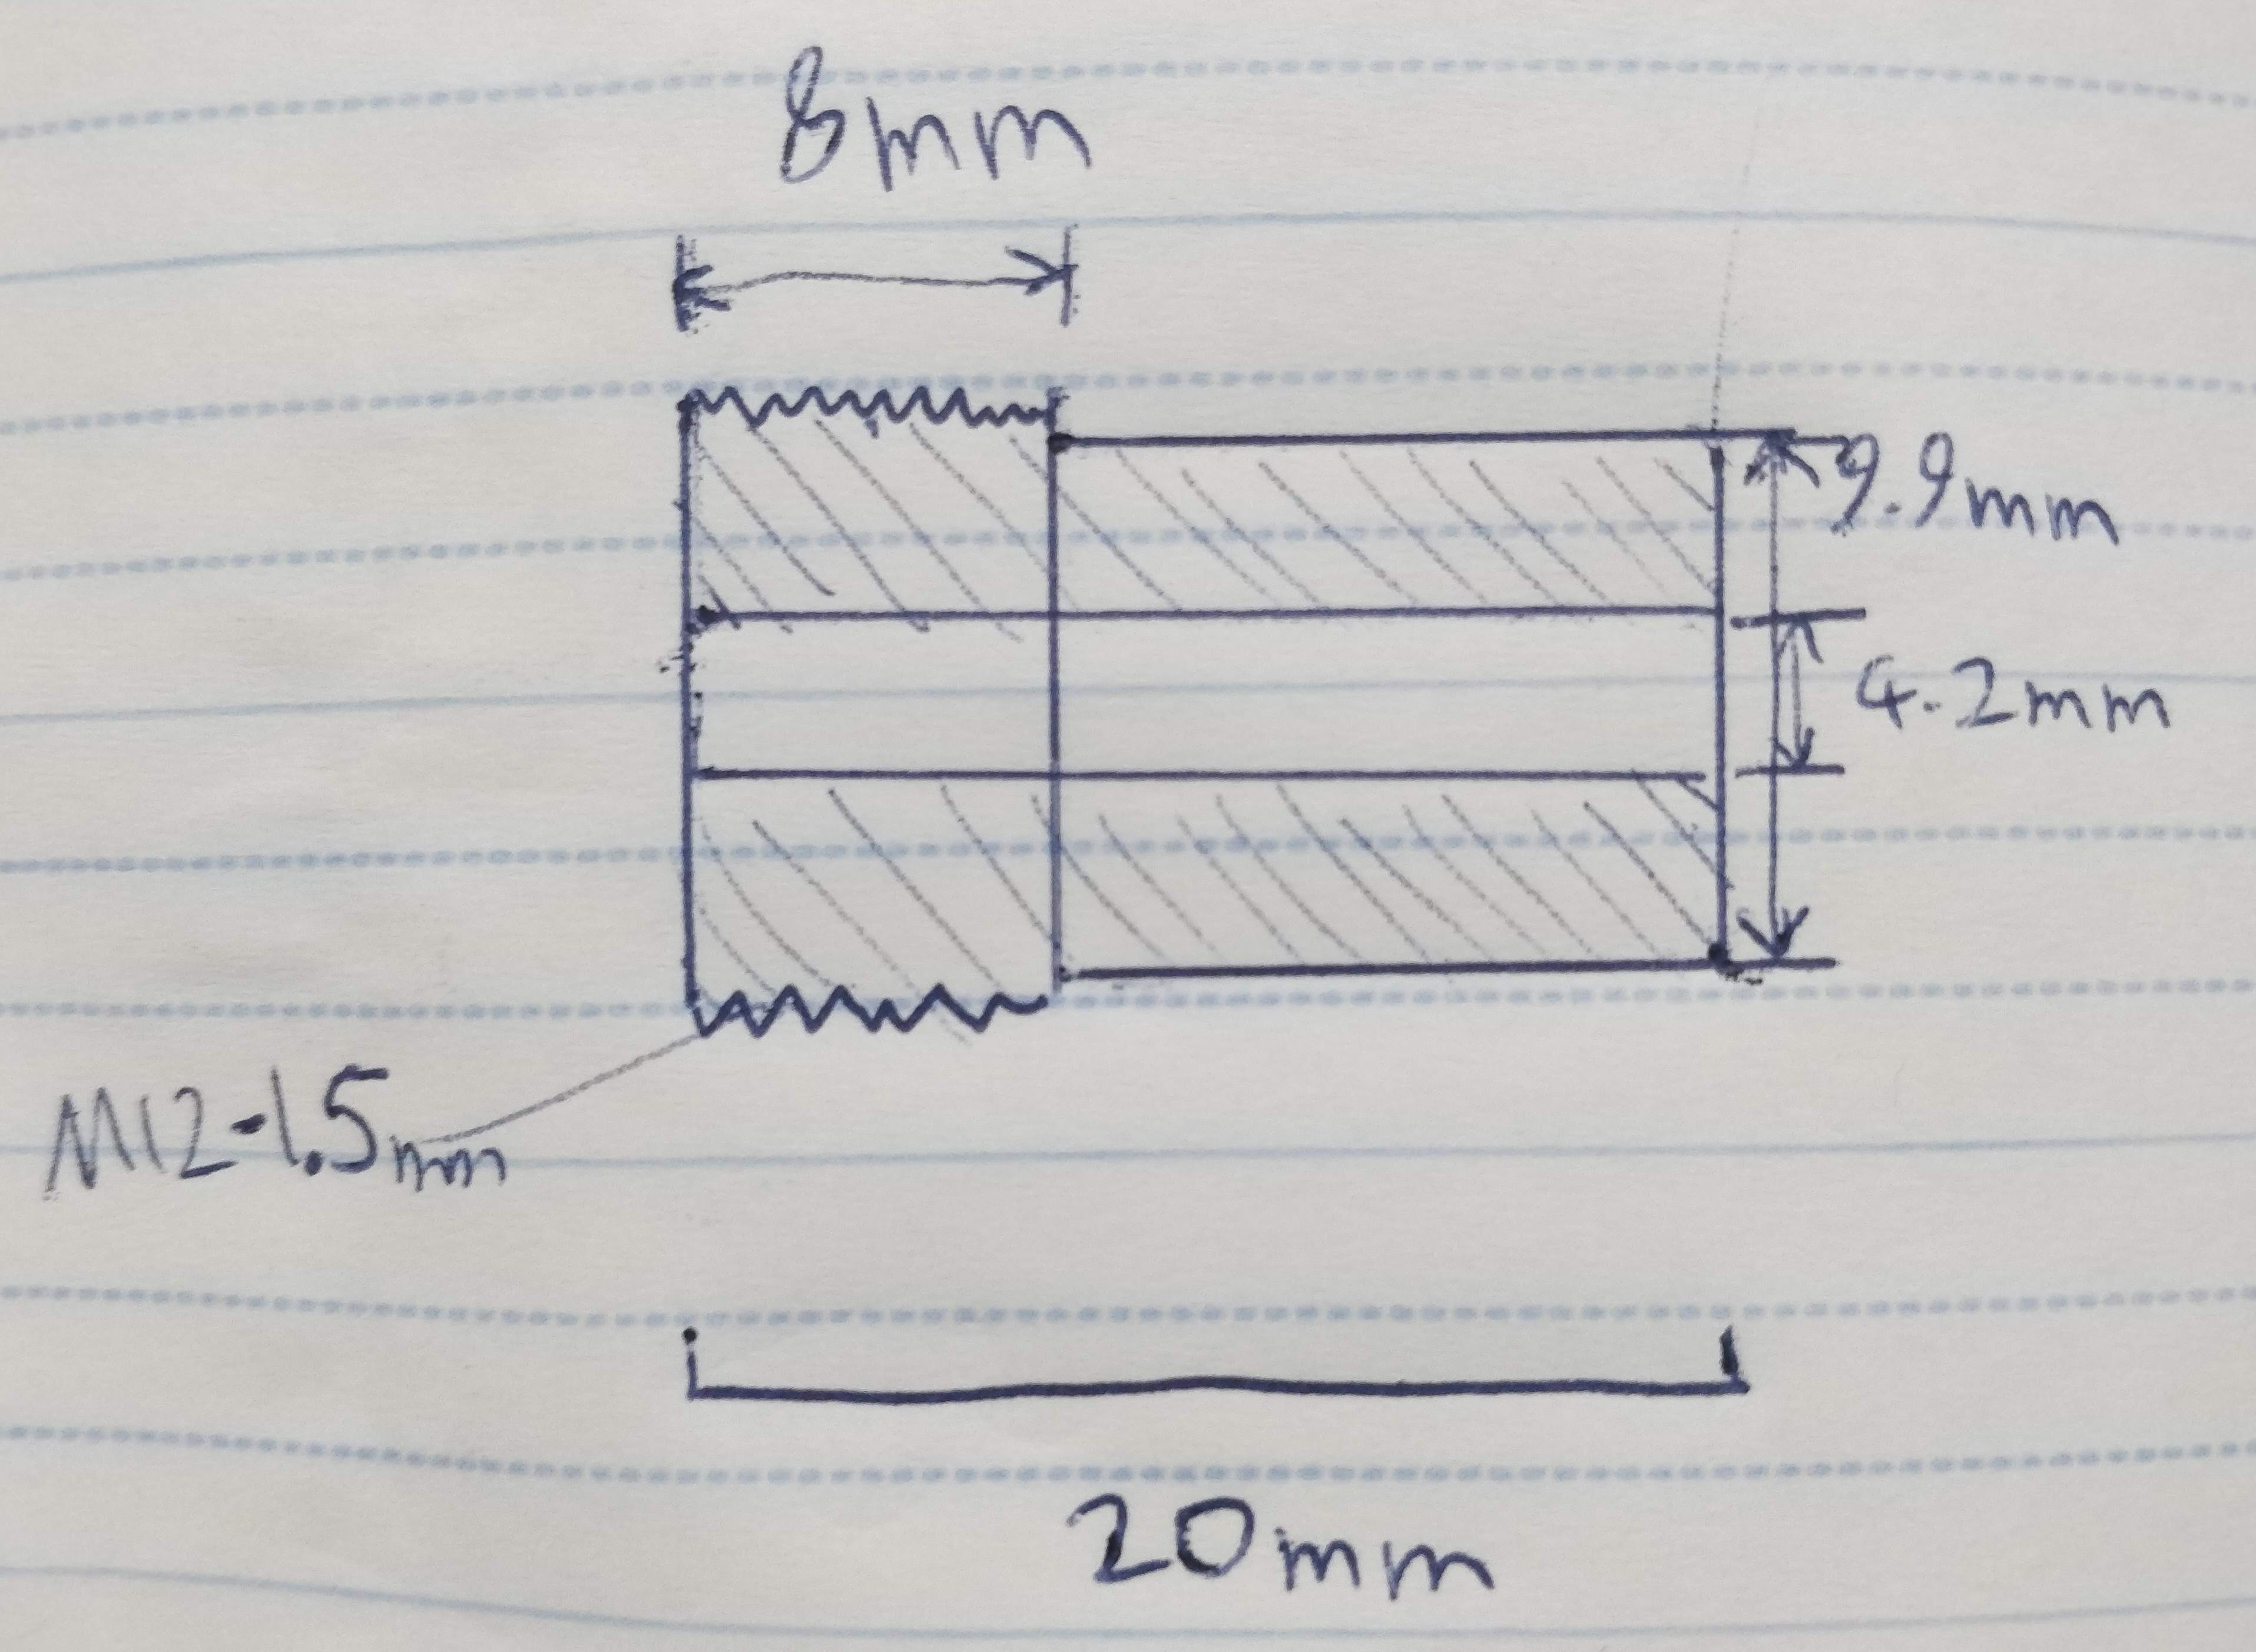 8mm
9.9mm
4.2mm
M12-1.5mm
20mm